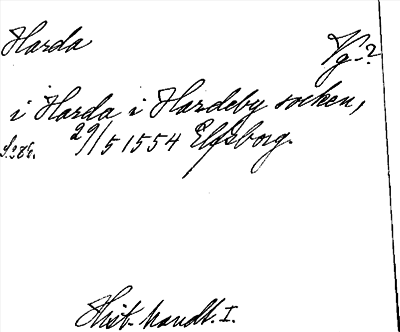 Harda
Vg. ?
i Harda i Hardeby socken,
29/5 1554 Elfsborg.
Hist. handl. I.